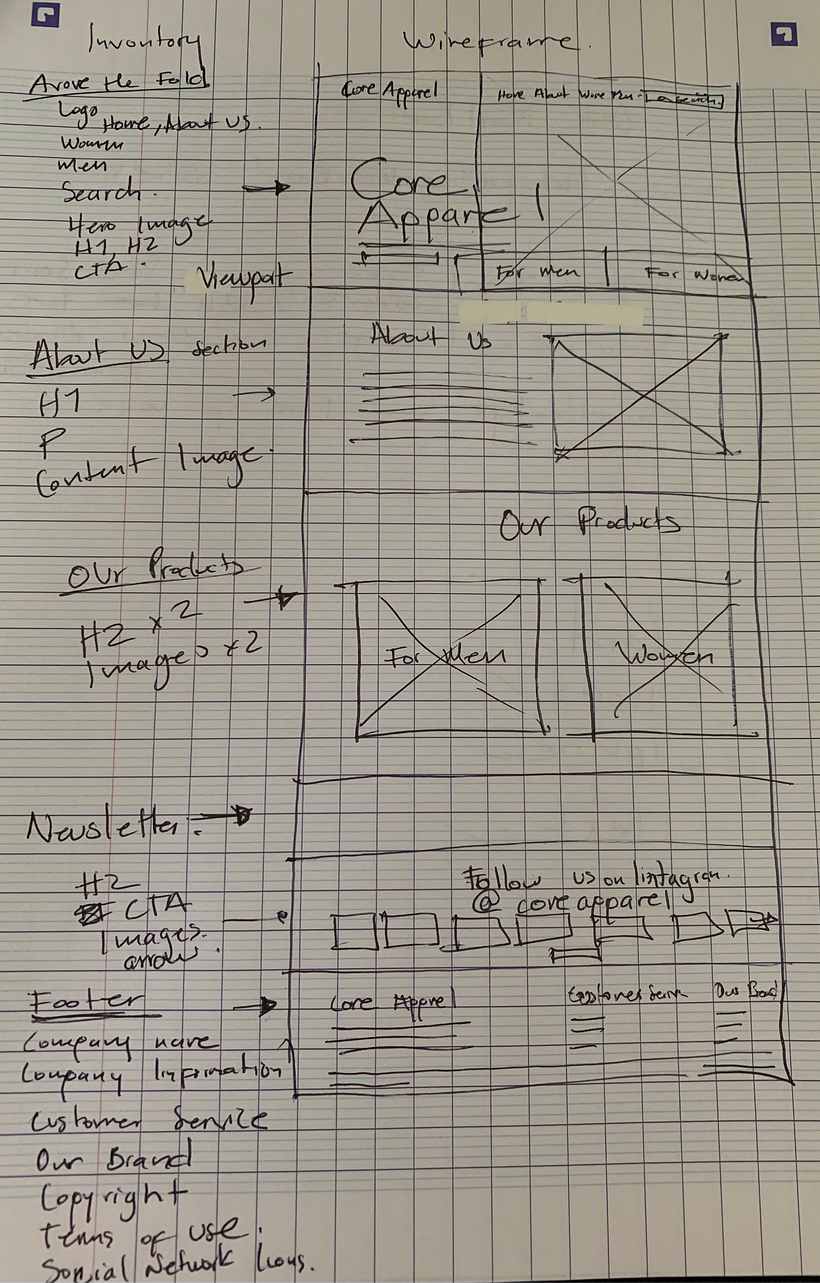 Inventory
Wireframe.
Avove the Fold
Logo
Home, About US.
Women
Men
Search.
Hero Image
H1, H2
CTA.
Viewport
Core Apparel
Home About Women Men Search
Core
Apparel
For Men
For Women
About US Section
H1
P
Content Image.
About Us
Our Products
H2 x 2
Images x2
Our Products
For Men
Women
Newsletter.
H2
CTA
Images.
arrows.
Follow us on Instagram.
@ coreapparel
Footer
Company name
Company Information
Customer Service
Our Brand
Copyright
Terms of use.
Social Network Icons.
Core Apprel
Customer Servic
Our Brand